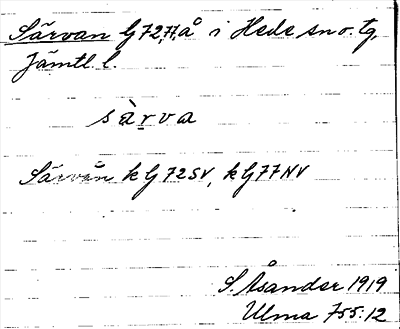 Särvan G72,77,å i Hede sn o. tg,
Jämtl. l.
sàrva
Särvån k G72SV, k G77NV
S. Åsander 1919
Ulma 755:12